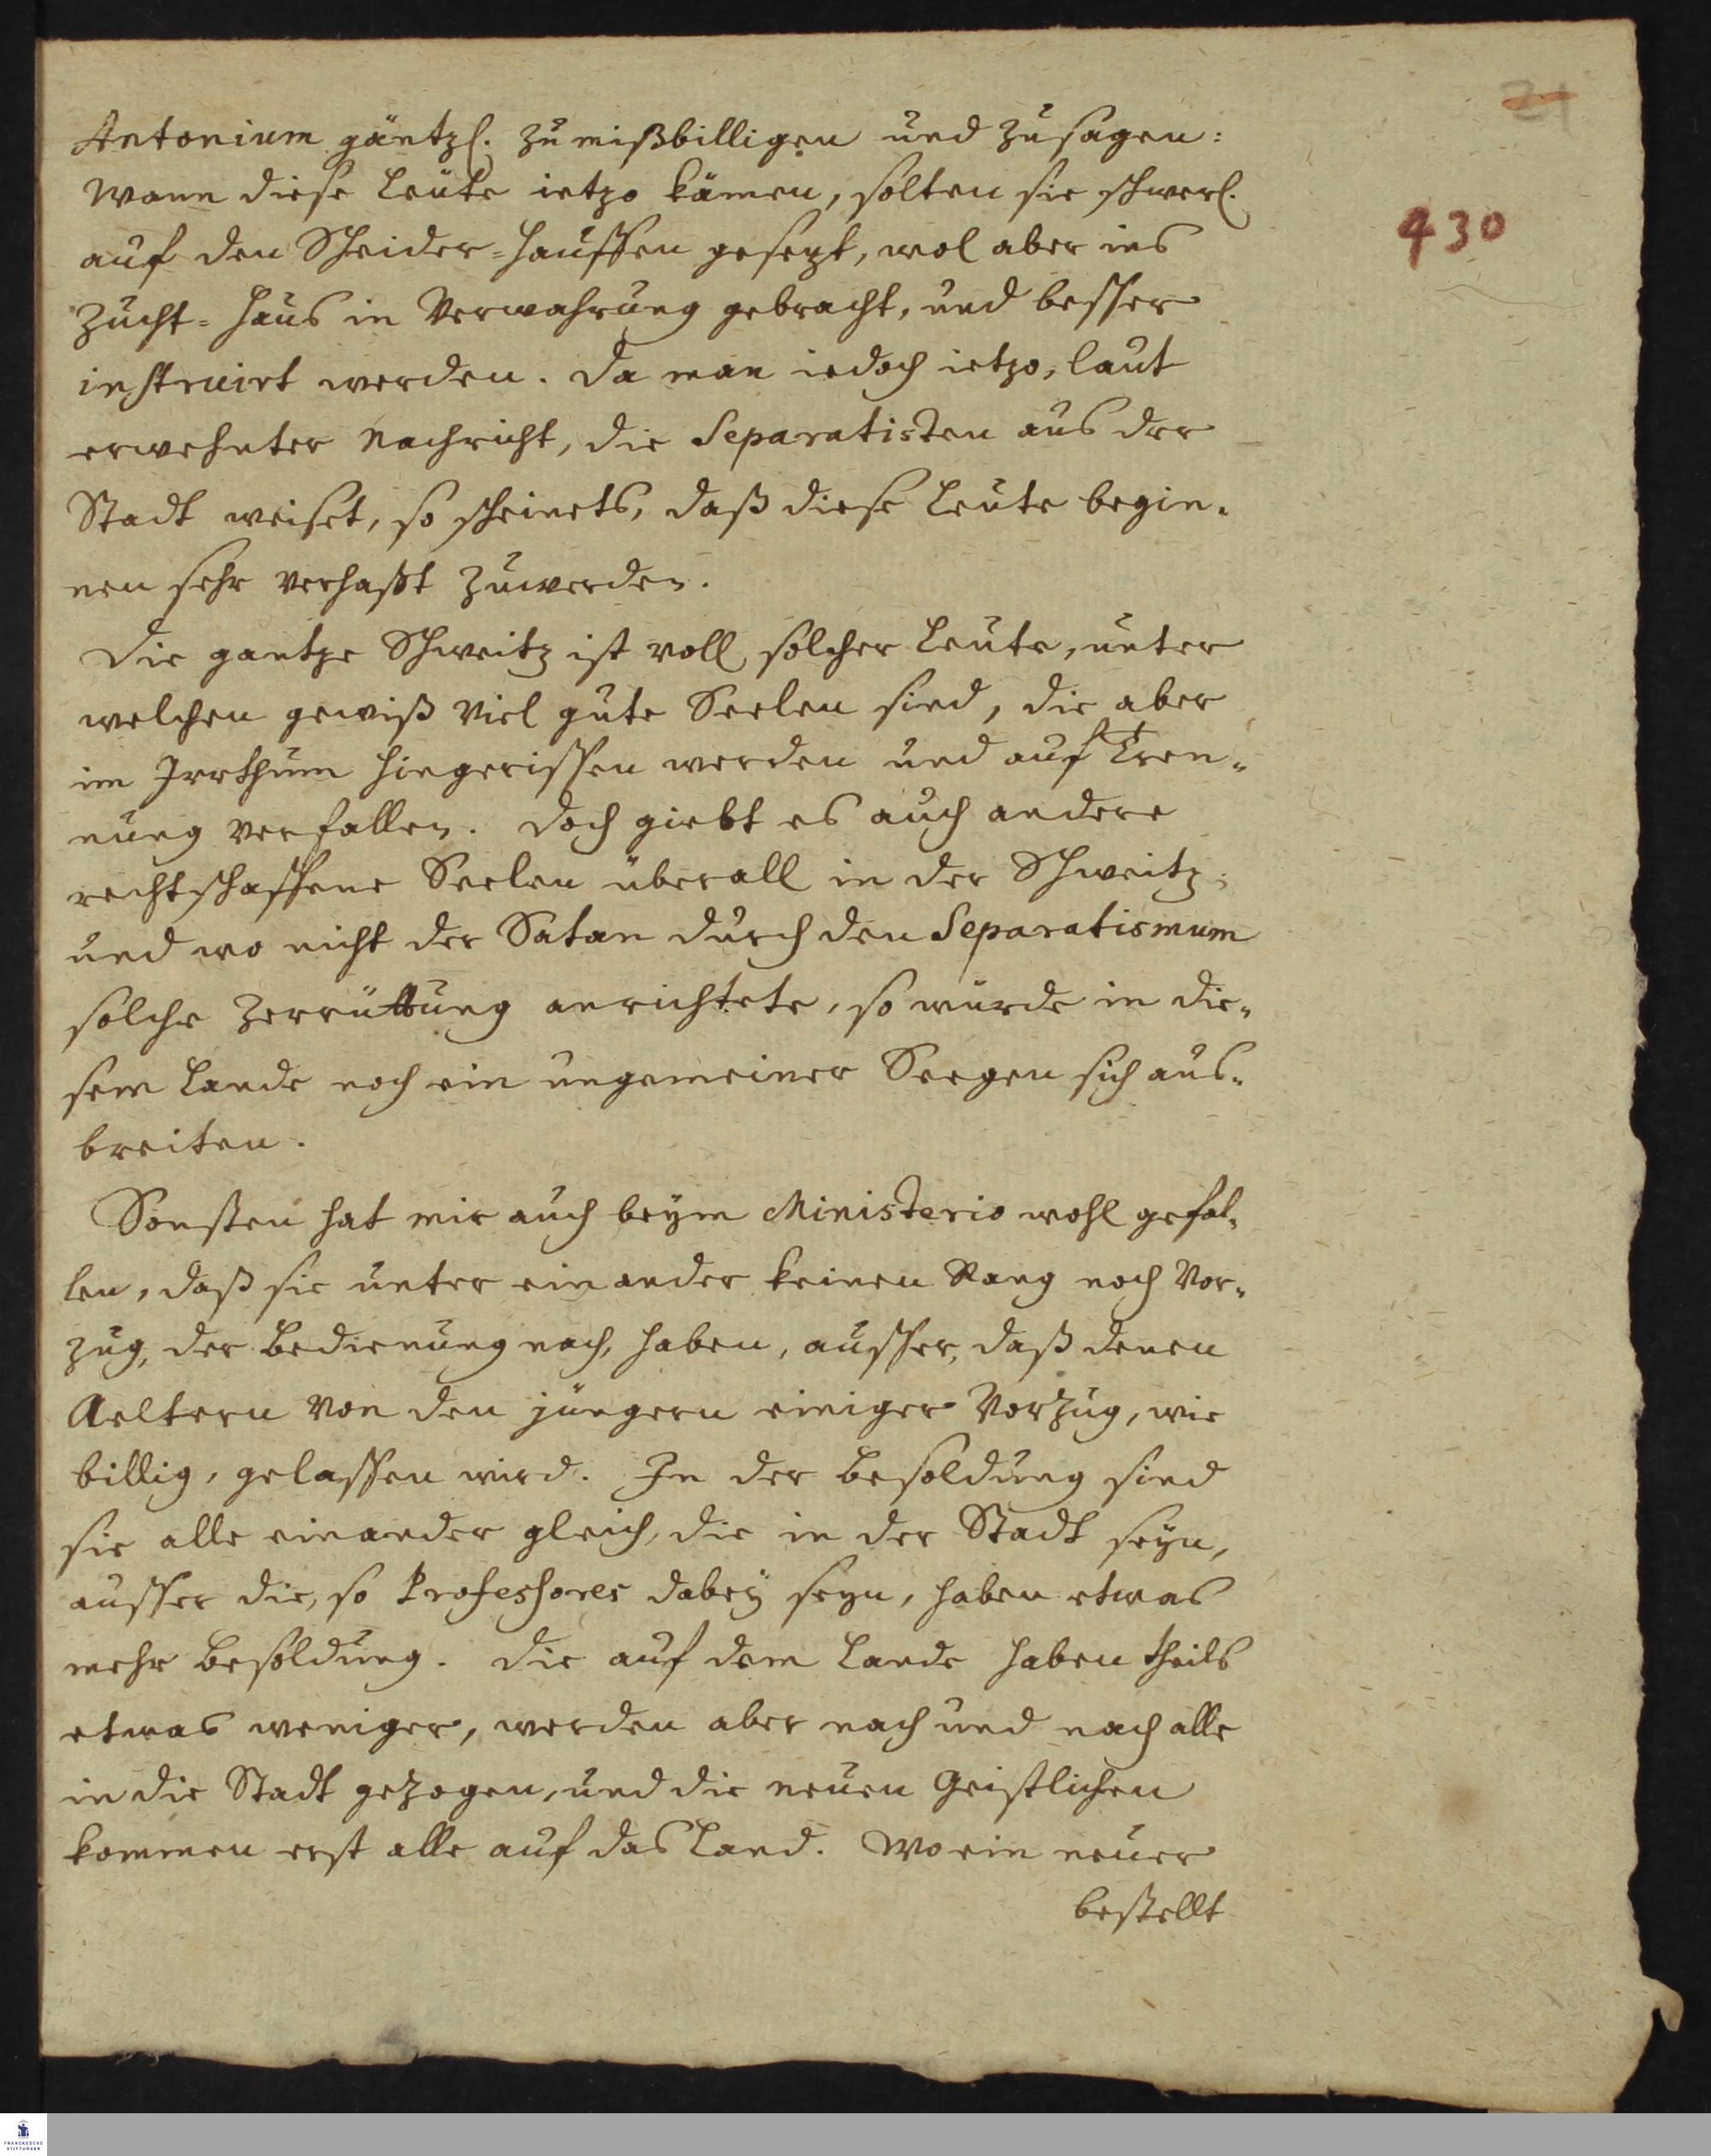 21
430
Antonium gäntzl. zu mißbilligen und zusagen:
Wann diese Leute ietzo kämen, solten sie schwerl.
auf den Scheider-Hauffen gesezt, wol aber ins
Zucht-Haus in Verwahrung gebracht, und besser
instruirt werden. Da man iedoch ietzo, laut
erwehnter Nachricht, die Separatisten aus der
Stadt weiset, so scheinets, daß diese Leute begin-
nen sehr verhaßt zuwerden.
Die gantze Schweitz ist voll solcher Leute, unter
welchen gewiß viel gute Seelen sind, die aber
im Irrthum hingerissen werden und auf Tren-
nung verfallen. Doch giebt es auch andere
rechtschaffene Seelen überall in der Schweitz;
und wo nicht der Satan durch den Separatismum
solche Zerrüttung anrichtete, so würde in die-
sem Lande noch ein ungemeiner Seegen sich aus-
breiten.
Sonsten hat mir auch beym Ministerio wohl gefal-
len, daß sie unter einander keinen Rang noch Vor-
zug, der Bedienung nach, haben, ausser, daß denen
Aeltern von den jüngern einiger Vorzug, wie
billig, gelassen wird. In der Besoldung sind
sie alle einander gleich, die in der Stadt seyn,
ausser die, so Professores dabey seyn, haben etwas
mehr Besoldung. Die auf dem Lande haben theils
etwas weniger, werden aber nach und nach alle
in die Stadt gezogen, und die neuen Geistlichen
kommen erst alle auf das Land. Wo ein neuer
bestellt
FRANCKESCHE
STIFTUNGEN